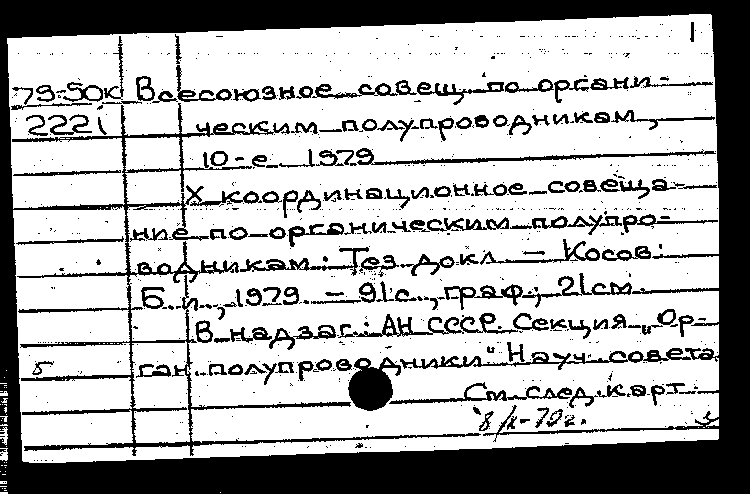 1
79-50к Всесоюзное совещ. по органи-
2221 ческим полупроводникам,
10-е. 1979
X координационное совеща-
ние по органическим полупро-
водникам: Тез. докл. — Косов:
Б. и., 1979. — 91 с., граф.; 21 см.
В надзаг.: АН СССР. Секция „Ор-
5 ган. полупроводники" Науч. совета
См. след. карт.
8/X-79г.